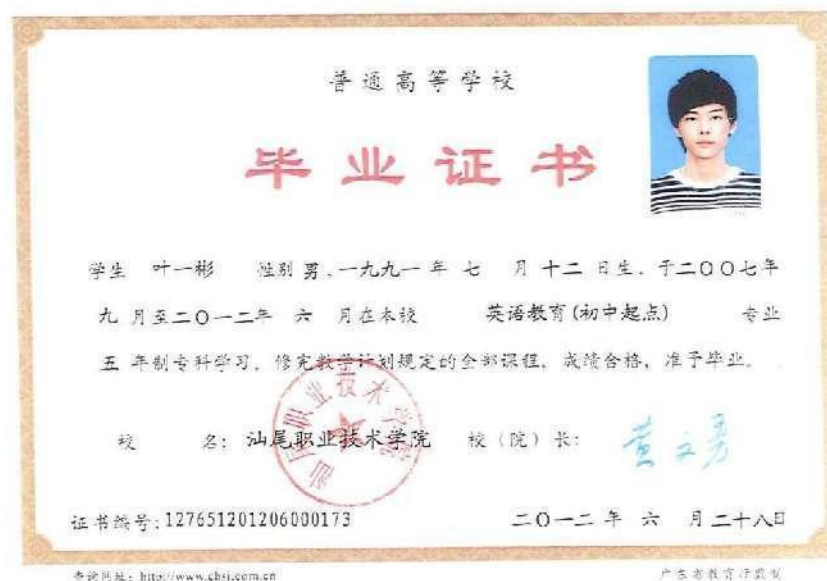 普通高等学校
毕业证书
学生 叶一彬 性别 男，一九九一 年 七 月 十二 日生，于二〇〇七年
九 月至二〇一二年 六 月在本校 英语教育(初中起点) 专业
五 年制专科学习，修完教学计划规定的全部课程，成绩合格，准予毕业。
汕尾职业技术学院
校 名：汕尾职业技术学院 校（院）长：黄文勇
证书编号:127651201206000173 二〇一二 年 六 月 二十八日
查询网址：http://www.chsi.com.cn 广东省教育厅监制